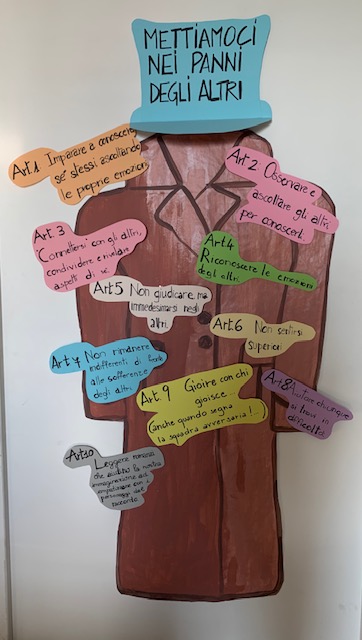 METTIAMOCI
NEI PANNI
DEGLI ALTRI
Art.1 Imparare a conoscere
se stessi ascoltando
le proprie emozioni
Art 2 Osservare e
ascoltare gli altri
per conoscerli
Art.3
Connettersi con gli altri,
condividere e rivelare
aspetti di sé.
Art.4
Riconoscere le emozioni
degli altri.
Art.5 Non giudicare ma
immedesimarsi negli
altri.
Art.6 Non sentirsi
superiori
Art.7 Non rimanere
indifferenti di fronte
alle sofferenze
degli altri.
Art.8 Aiutare chiunque
si trovi in
difficoltà
Art. 9 Gioire con chi
gioisce...
(anche quando segna
la squadra avversaria!...
Art10
Leggere romanzi
che aiutino la nostra
immaginazione ad
empatizzare con i
personaggi del
racconto